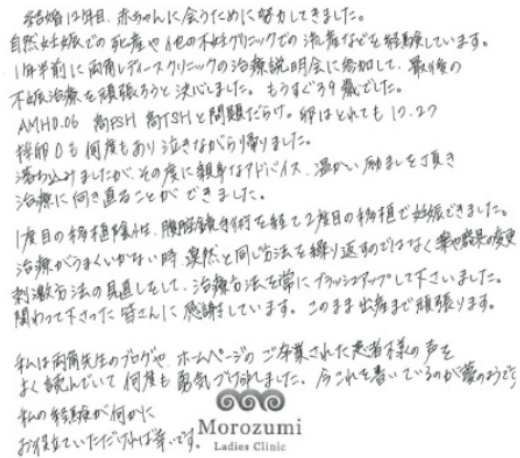 結婚12年目、赤ちゃんに会うために努力してきました。
自然妊娠での死産や他の不妊クリニックでの流産などを経験しています。
1年半前に両角レディースクリニックの治療説明会に参加して、最後の
不妊治療を頑張ろうと決心しました。もうすぐ39歳でした。
AMH0.06 高FSH 高TSHと問題だらけ。卵はとれても1つ、2つ
採卵0も何度もあり泣きながら帰りました。
落ち込みましたが、その度に親身なアドバイス、温かい励ましを頂き
治療に向き直ることができました。
1度目の移植陰性、腹腔鏡手術を経て2度目の移植で妊娠できました。
治療がうまくいかない時、漠然と同じ方法を繰り返すのではなく薬や器具の変更
刺激方法の見直しをして、治療方法を常にブラッシュアップして下さいました。
関わって下さった皆さんに感謝しています。このまま出産まで頑張ります。
私は両角先生のブログや、ホームページのご卒業された患者様の声を
よく読んでいて何度も勇気づけられました。今これを書いているのが夢のようです
私の経験が何かに
お役立ていただければ幸いです。
Morozumi
Ladies Clinic